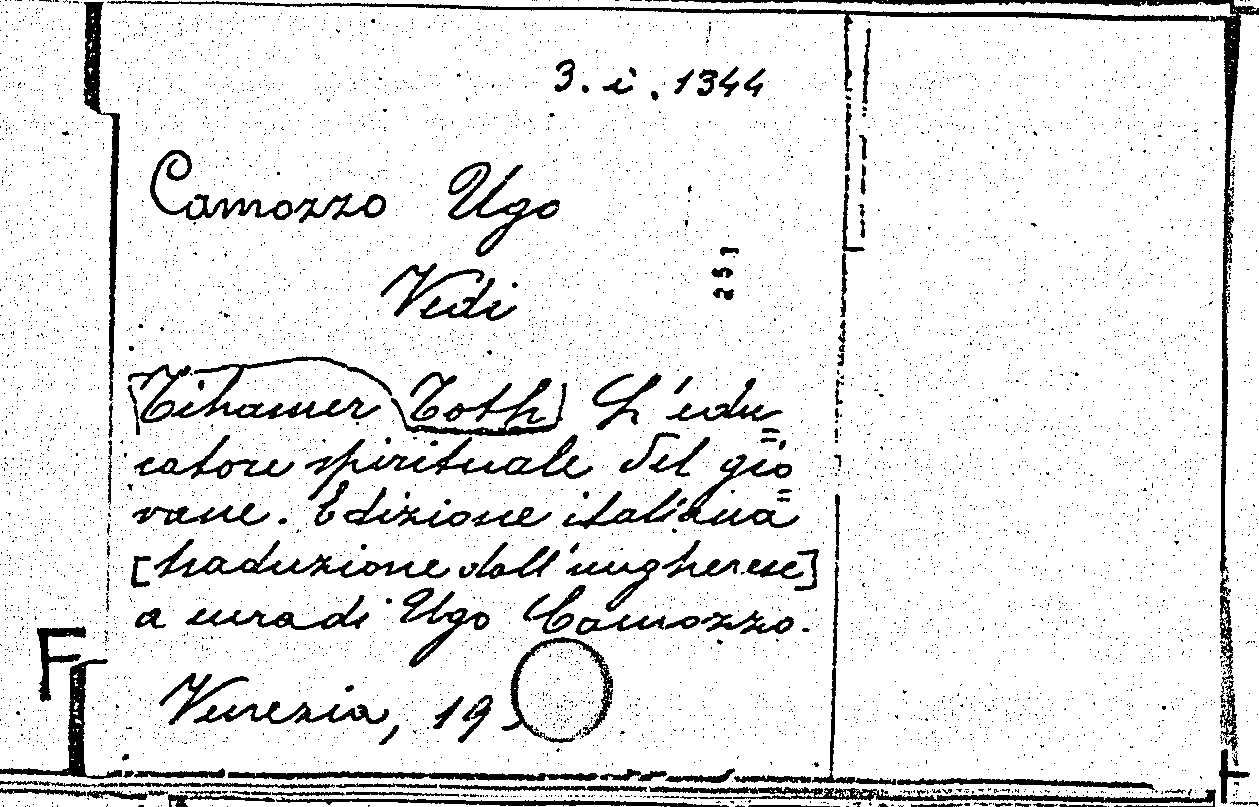 3. i. 1344
Camozzo Ugo
Vedi
251
Tihamer Toth) L'edu=
catore spirituale del gio=
vane. Edizione italiana
[traduzione dall'ungherese]
a cura di Ugo Camozzo.
F
Venezia, 19